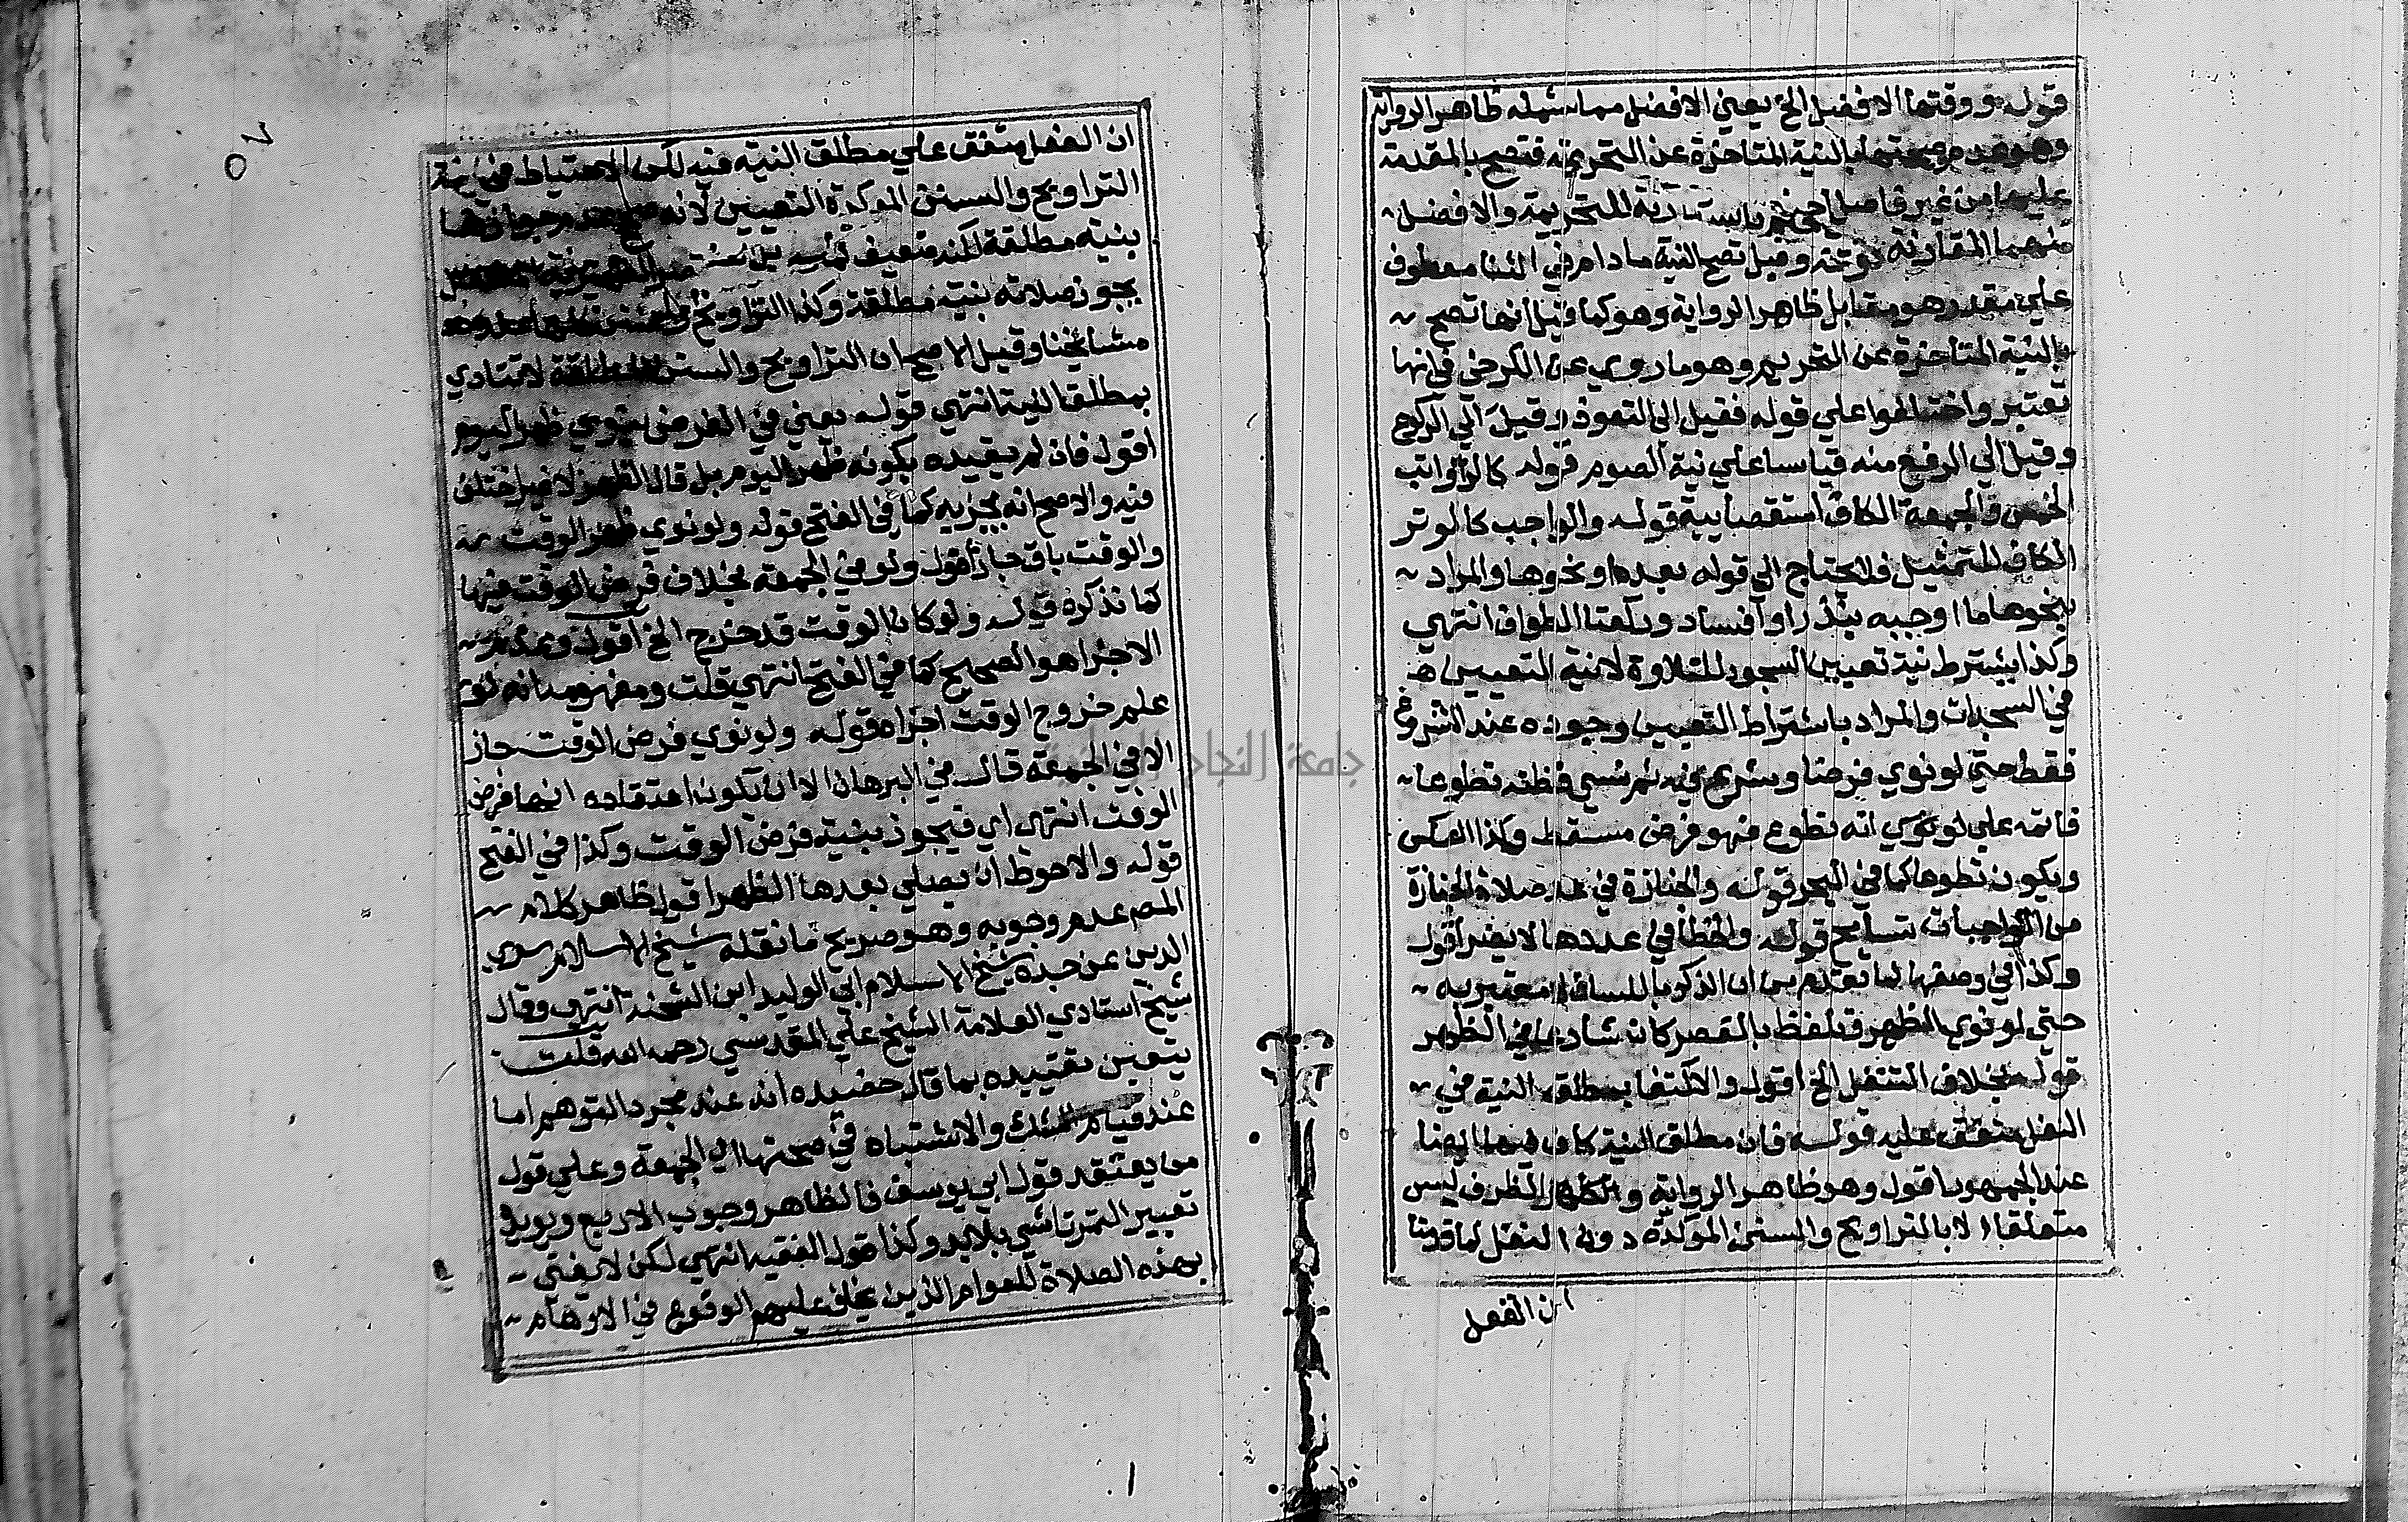 قوله ووقتها الافضل الخ يعني الافضل مما شمله ظاهر الرواية
وهو عدم صحتها بالنية المتاخرة عن التحريمة فتصح بالمقدمة
عليها من غير فاصل اجنبي للتحريمة والافضل
منهما المقارنة قوله وقيل تصح النية ما دام في الثنا معطوف
علي مقدر هو مقابل ظاهر الرواية وهو كما قيل انها تصح
بالنية المتاخرة عن التحريم وهو ما روي عن الكرخي فانها
تعتبر واختلفوا علي قوله فقيل الي التعوذ وقيل الي الركوع
وقيل الي الرفع منه قياسا علي نية الصوم قوله كالرواتب
الخمس والجمعة الكاف استقصائية قوله والواجب كالوتر
الكاف للتمثيل فلا يحتاج الي قوله بعدها ونحوها والمراد
بنحوها ما اوجبه بنذر او افساد وركعتا الطواف انتهي
وكذا يشترط نية تعيين السجود للتلاوة لا نية التعيين
في السجدات والمراد باشتراط التعيين وجوده عند الشروع
فقط حتي لو نوي فرضا وشرع فيه ثم نسي فظنه تطوعا
فاتمه علي انه تطوع فهو فرض مسقط وكذا العكس
ويكون تطوعا كما في البحر قوله والجنازة في عد صلاة الجنازة
من الواجبات تسامح قوله والخطا في عددها لا يضر اقول
وكذا في وصفها لما تقدم من ان الذكر باللسان لا معتبر به
حتي لو نوي الظهر وتلفظ بالعصر كان شارعا في الظهر
قوله بخلاف التنفل الخ اقول والاكتفا بمطلق النية في
النفل متفق عليه قوله فان مطلق النية كاف فيها ايضا
عند الجمهور اقول وهو ظاهر الرواية والظرف ليس
متعلقا الا بالتراويح والسنن الموكدة دون النفل لما قدمنا
ان النفل
ان النفل متفق علي مطلق النية فيه لكن الاحتياط في نية
التراويح والسنن الموكدة التعيين لانه
بنية مطلقة
يجوز صلاته بنية مطلقة وكذا التراويح
مشائخنا وقيل الاصح ان التراويح والسنن المطلقة لا تتادي
بمطلق النية انتهي قوله يعني في الفرض ينوي ظهر اليوم
اقول فان لم يقيده بكونه ظهر اليوم بل قال الظهر لا غير اختلف
فيه والاصح انه يجزيه كما في الفتح قوله ولو نوي ظهر الوقت
والوقت باق جاز اقول ولو في الجمعة بخلاف فرض الوقت فيها
كما نذكره قوله ولو كان الوقت قد خرج الخ اقول وعدم
الاجزا هو الصحيح كما في الفتح انتهي قلت ومفهومه انه لو
علم خروج الوقت اجزاه قوله ولو نوي فرض الوقت جاز
الا في الجمعة قال في البرهان الا ان تكون اعتقاده انها فرض
الوقت انتهي اي فيجوز بنية فرض الوقت وكذا في الفتح
قوله والاحوط ان يصلي بعدها الظهر اقول ظاهر كلام
المصـ عدم وجوبه وهو صريح ما نقله شيخ الاسلام سري
الدين عن جده شيخ الاسلام ابي الوليد ابن الشحنة انتهي وقال
شيخ استادي العلامة الشيخ علي المقدسي رحمه الله قلت
يتعين تقييده بما قال حفيده انه عند مجرد التوهم اما
عند قيام الشك والاشتباه في صحتها اي الجمعة وعلي قول
من يعتقد قول ابي يوسف فالظاهر وجوب الاربع ويويده
تعبير التمرتاشي بلابد وكذا قول الفقيه انتهي لكن لا يفتي
بهذه الصلاة للعوام الذين يخاف عليهم الوقوع في الاوهام
جامعة النجاح الوطنية